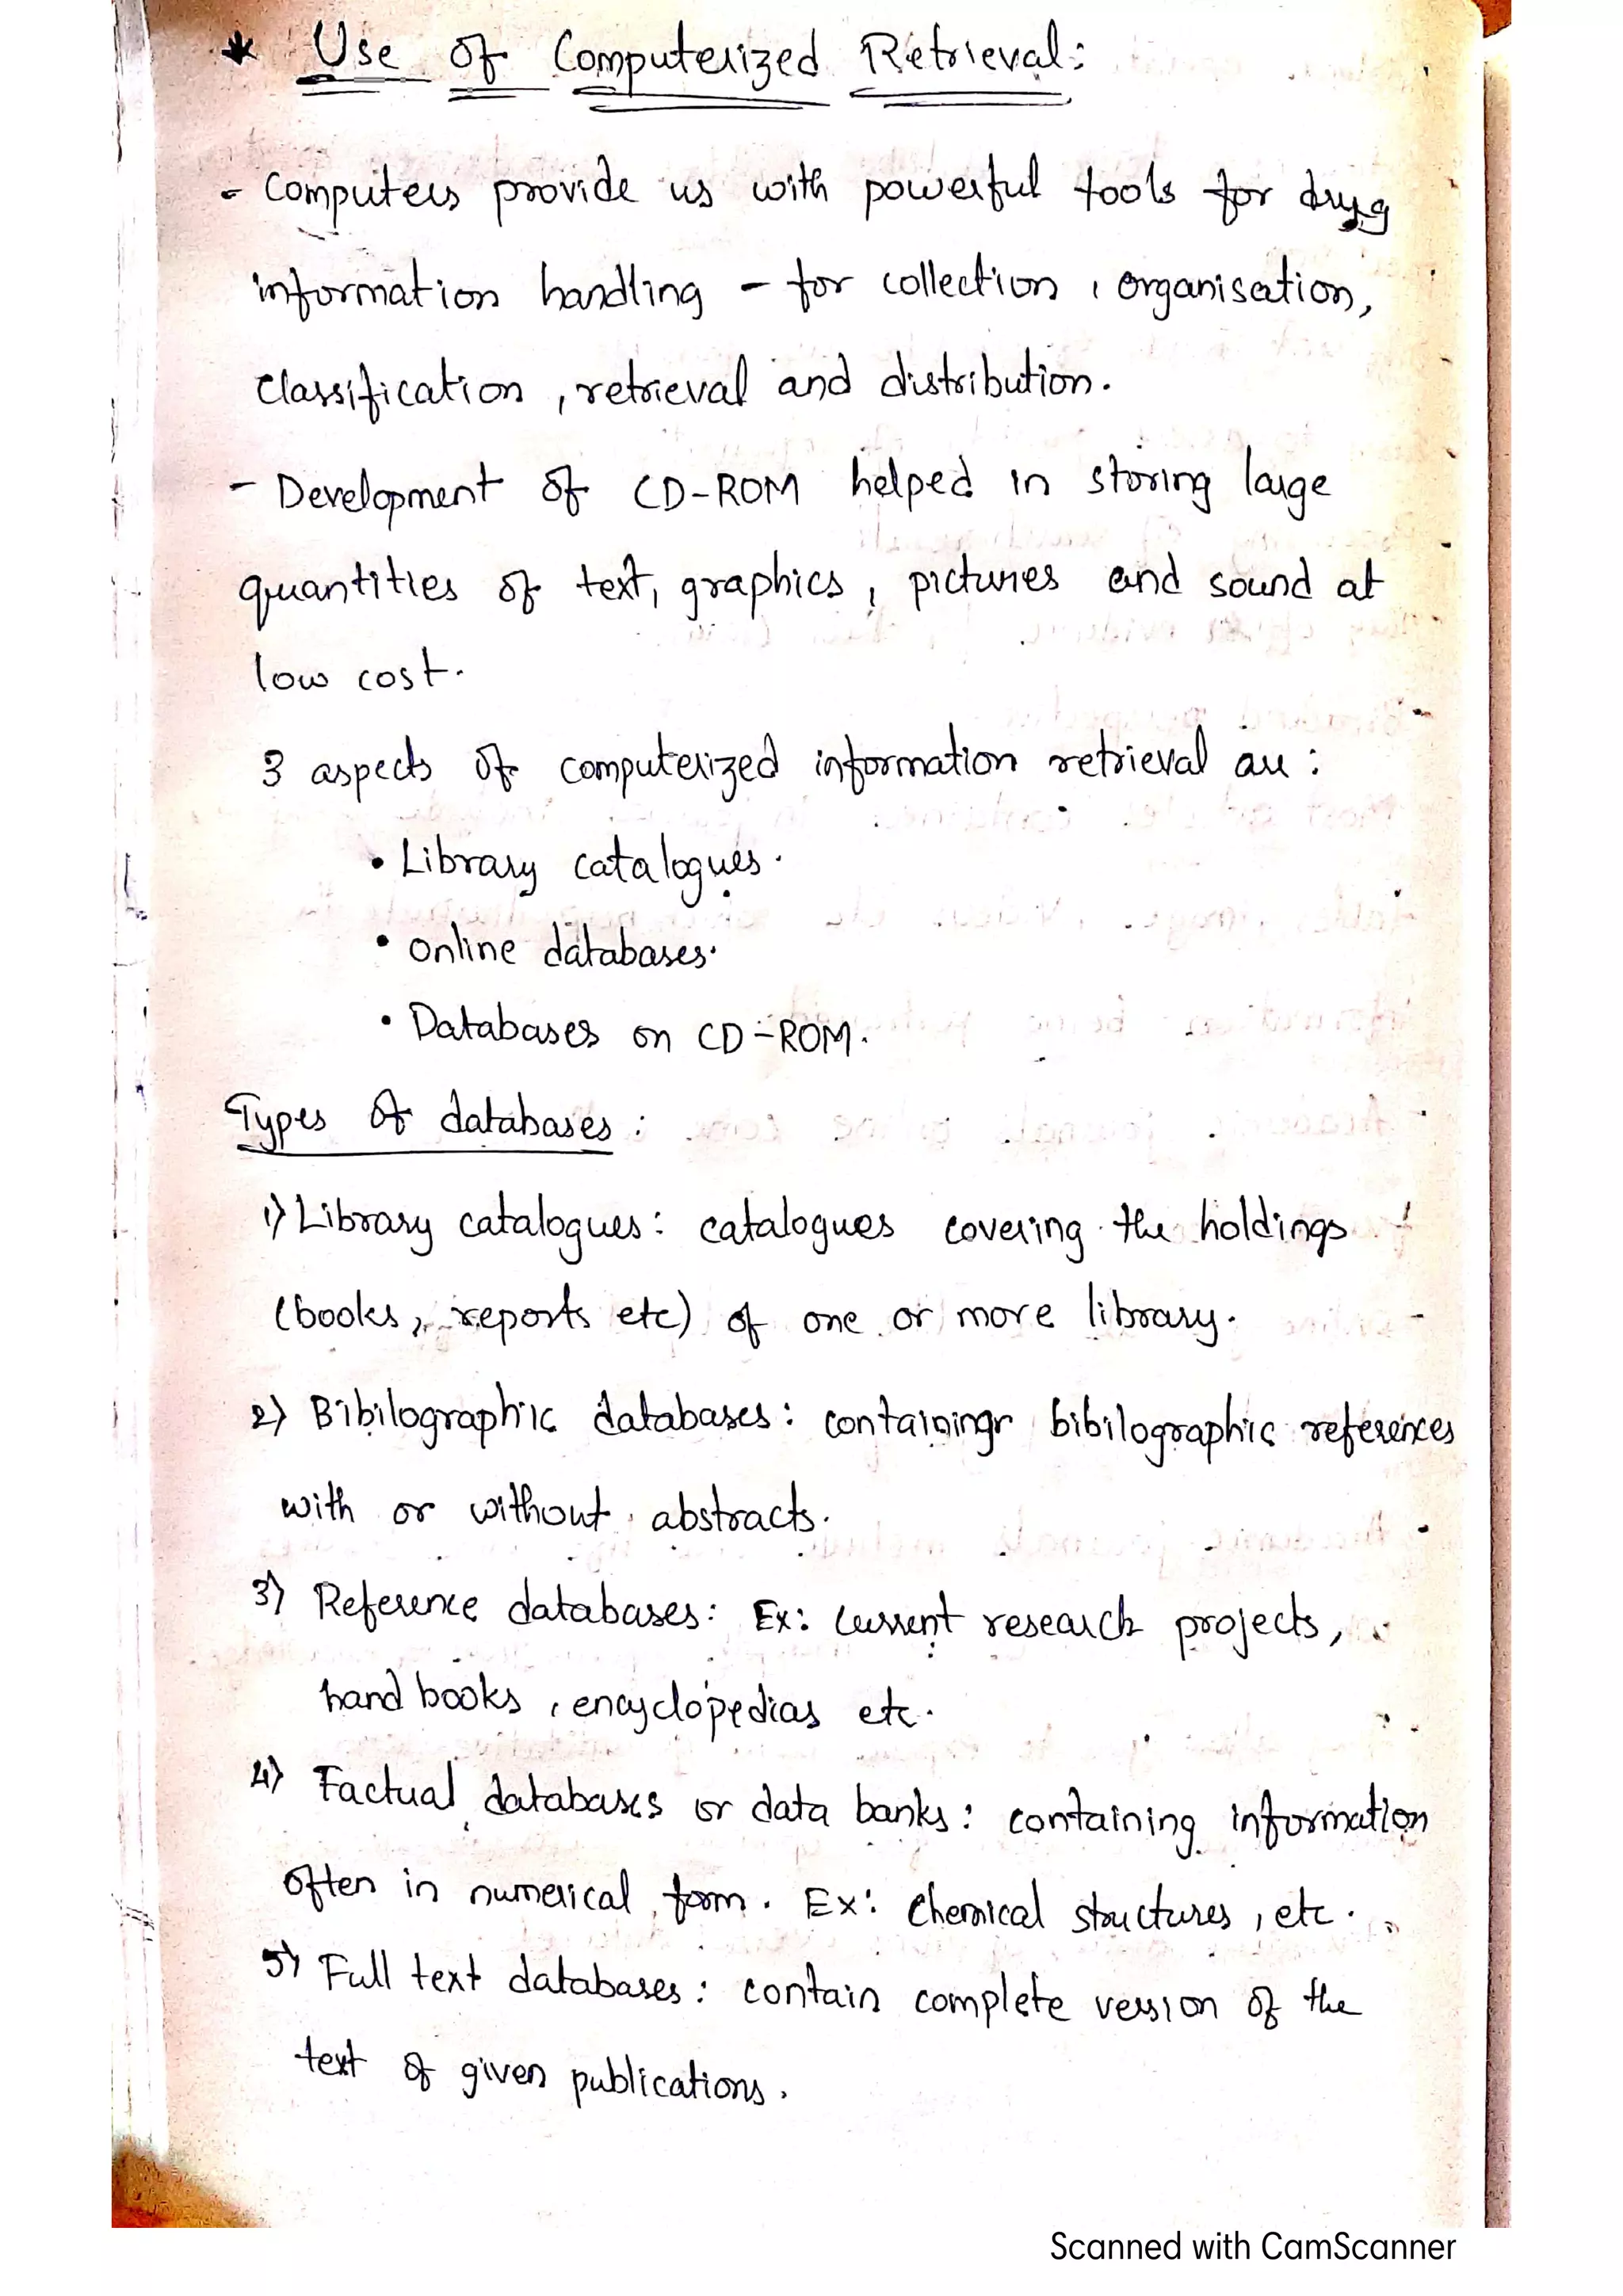 * Use of Computerized Retrieval:
- Computers provide us with powerful tools for drug
information handling - for collection, organisation,
classification, retrieval and distribution.
- Development of CD-ROM helped in storing large
quantities of text, graphics, pictures and sound at
low cost.
3 aspects of computerized information retrieval are:
• Library catalogues.
• online databases.
• Databases on CD-ROM.
Types of databases:
1) Library catalogues: catalogues covering the holdings
(books, reports etc) of one or more library.
2) Bibilographic databases: containing bibilographic references
with or without abstracts.
3) Reference databases: Ex: current research projects,
hand books, encyclopedias etc.
4) Factual databases or data banks: containing information
often in numerical form. Ex: Chemical structures, etc.
5) Full text databases: contain complete version of the
text of given publications.
Scanned with CamScanner